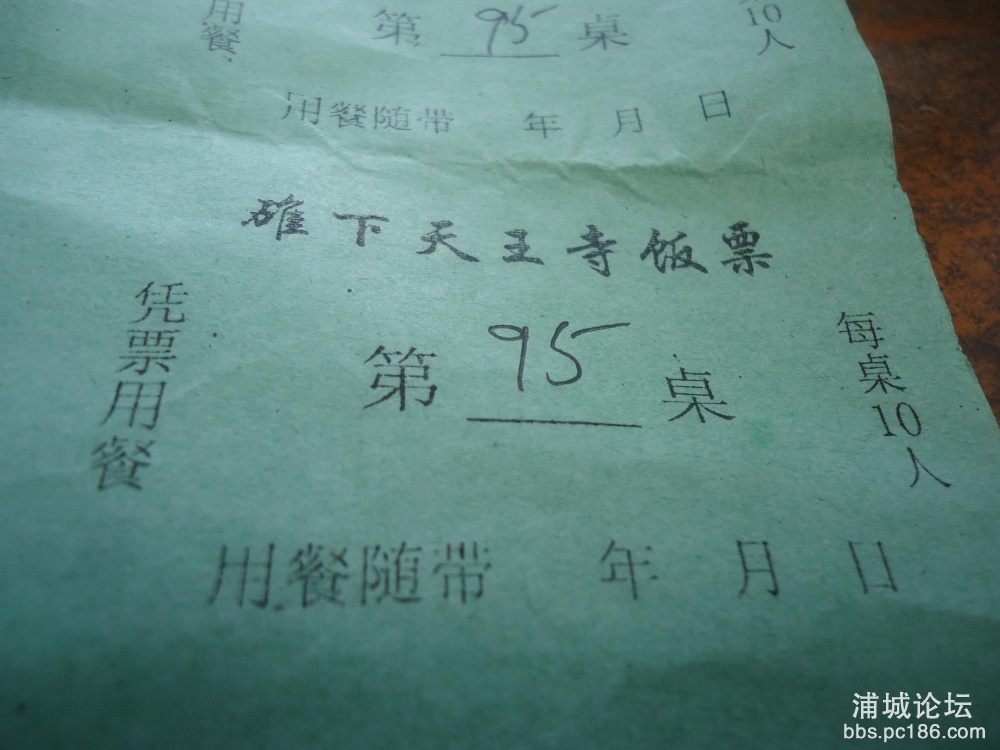 用餐
第 95 桌
10人
用餐随带 年 月 日
碓下天王寺饭票
凭票用餐
第 95 桌
每桌10人
用餐随带 年 月 日
浦城论坛
bbs.pc186.com